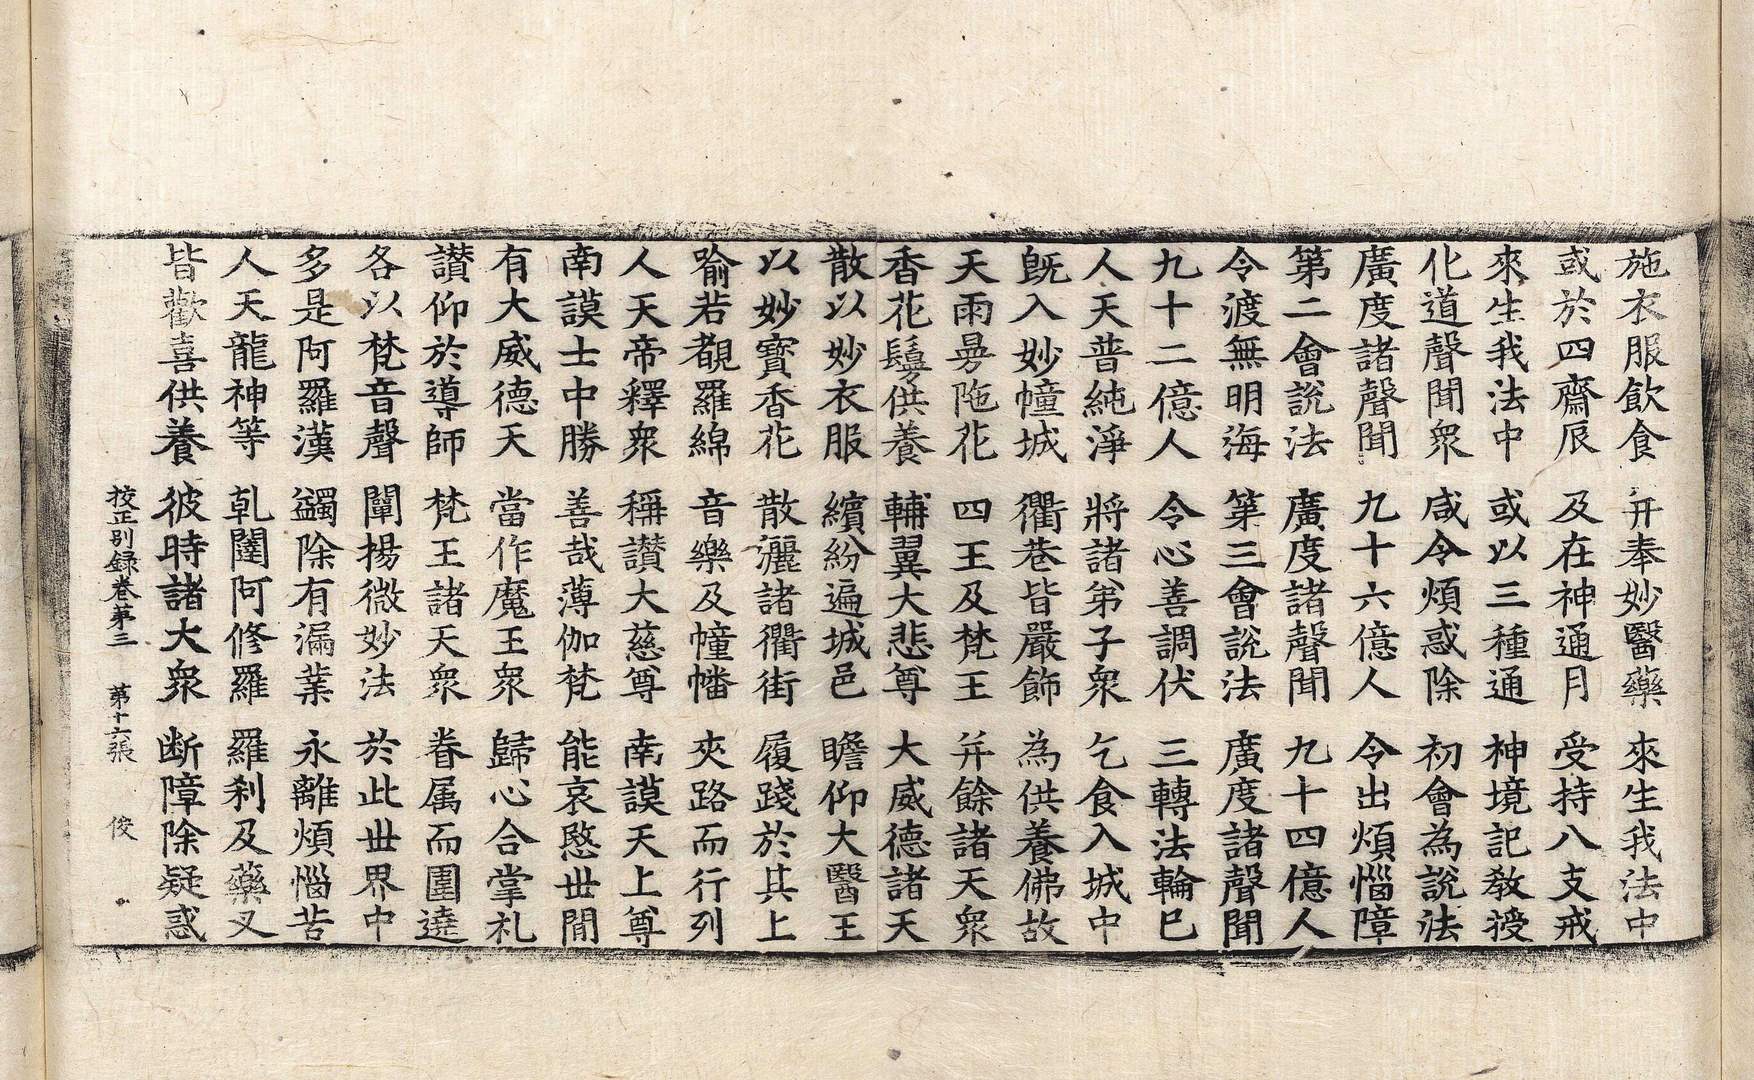 施衣服飲食 并奉妙醫藥 來生我法中
或於四齋辰 及在神通月 受持八支戒
來生我法中 或以三種通 神境記教授
化道聲聞衆 咸令煩惑除 初會為說法
廣度諸聲聞 九十六億人 令出煩惱障
第二會說法 廣度諸聲聞 九十四億人
令渡無明海 第三會說法 廣度諸聲聞
九十二億人 令心善調伏 三轉法輪已
人天普純淨 將諸弟子衆 乞食入城中
旣入妙幢城 衢巷皆嚴飾 為供養佛故
天雨曼陁花 四王及梵王 并餘諸天衆
香花鬘供養 輔翼大悲尊 大威德諸天
散以妙衣服 繽紛遍城邑 瞻仰大醫王
以妙寶香花 散灑諸衢街 履踐於其上
喻若覩羅綿 音樂及幢幡 夾路而行列
人天帝釋衆 稱讃大慈尊 南謨天上尊
南謨士中勝 善哉薄伽梵 能哀愍丗間
有大威德天 當作魔王衆 歸心合掌礼
讃仰於導師 梵王諸天衆 眷属而圍遶
各以梵音聲 闡揚微妙法 於此丗界中
多是阿羅漢 蠲除有漏業 永離煩惱苦
人天龍神等 乹闥阿修羅 羅刹及藥叉
皆歡喜供養 彼時諸大衆 断障除疑惑
校正别録卷第三 第十六張 俊